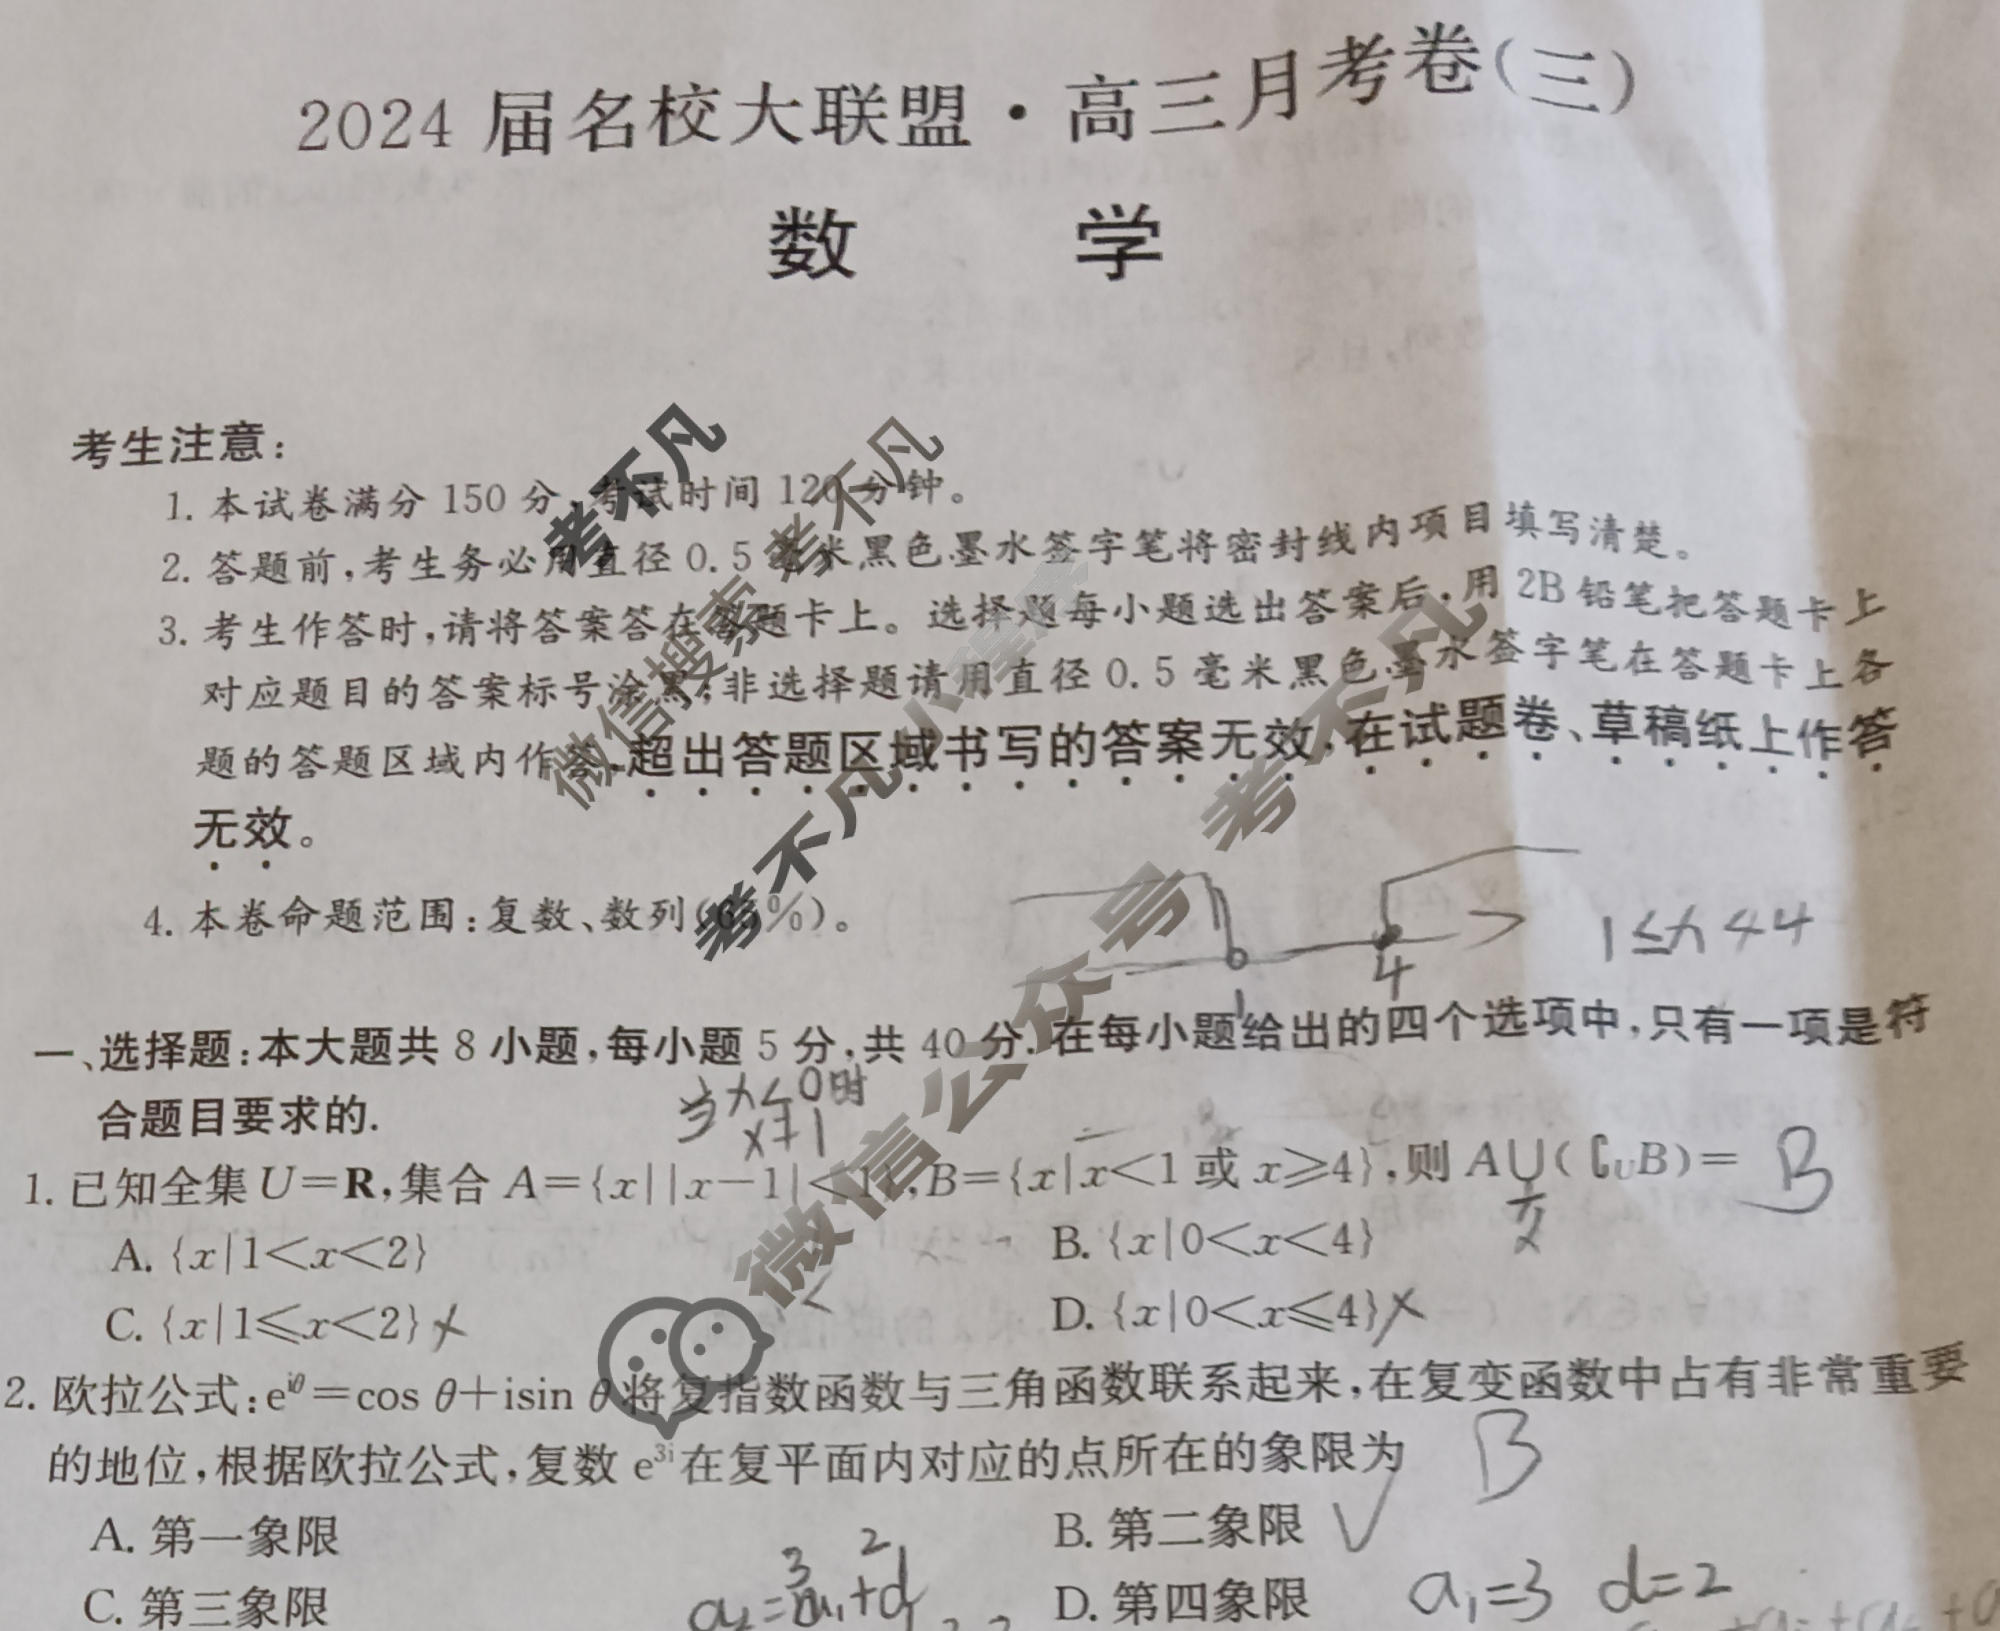 2024 届名校大联盟·高三月考卷(三)
数 学
考生注意:
1. 本试卷满分 150 分,考试时间 120 分钟。
2. 答题前,考生务必用直径 0.5 毫米黑色墨水签字笔将密封线内项目填写清楚。
3. 考生作答时,请将答案答在答题卡上。选择题每小题选出答案后,用 2B 铅笔把答题卡上
对应题目的答案标号涂黑;非选择题请用直径 0.5 毫米黑色墨水签字笔在答题卡上各
题的答题区域内作答,超出答题区域书写的答案无效,在试题卷、草稿纸上作答
无效。
4. 本卷命题范围:复数、数列(65%)。
1 4
1≤x<4
一、选择题:本大题共 8 小题,每小题 5 分,共 40 分.在每小题给出的四个选项中,只有一项是符
合题目要求的.
当x<0时
x≠1
1. 已知全集 U=R,集合 A={x||x-1|<1},B={x|x<1 或 x≥4},则 A∪(∁UB)= B
A. {x|1<x<2} B. {x|0<x<4}
C. {x|1≤x<2} D. {x|0<x≤4}
2. 欧拉公式:e^iθ=cos θ+isin θ 将复指数函数与三角函数联系起来,在复变函数中占有非常重要
的地位,根据欧拉公式,复数 e^3i 在复平面内对应的点所在的象限为 B
A. 第一象限 B. 第二象限
C. 第三象限 D. 第四象限
a₁=3 d=2
考不凡
微信搜索 考不凡
考不凡小程序
微信公众号 考不凡